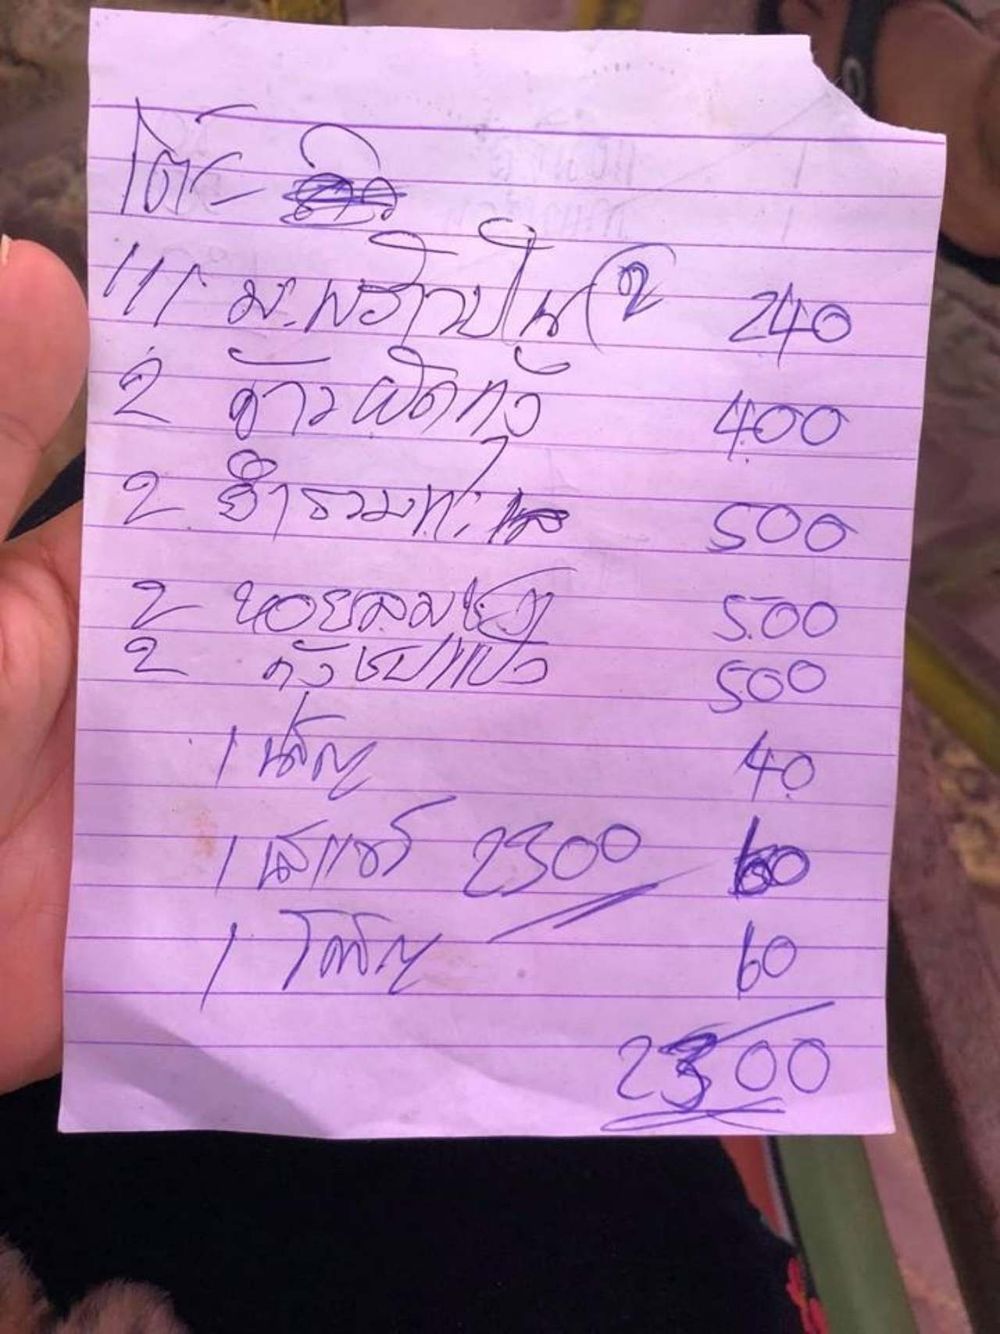 โต๊ะ
111 มะพร้าวปั่น (2 240
2 ข้าวผัดกุ้ง 400
2 ยำรวมทะเล 500
2 หอยลมชัก 500
2 กุ้งชุบแป้ง 500
1 40
1 2300 60
1 โค้ก 60
2300